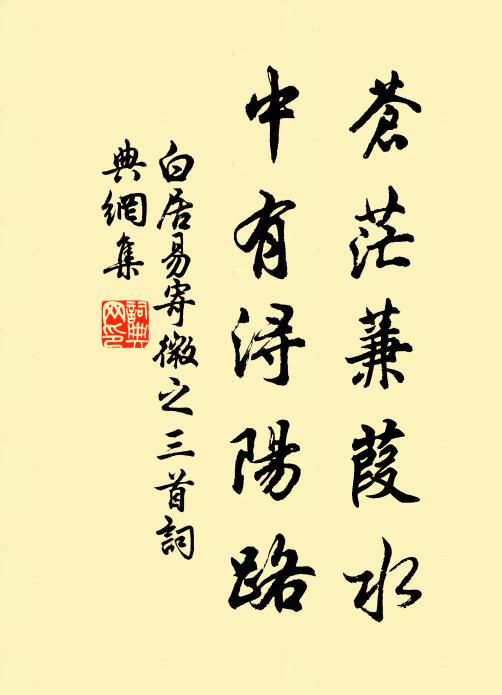 蒼茫蒹葭水
中有潯陽路
白居易寄微之三首詞
典網集
詞典
网印